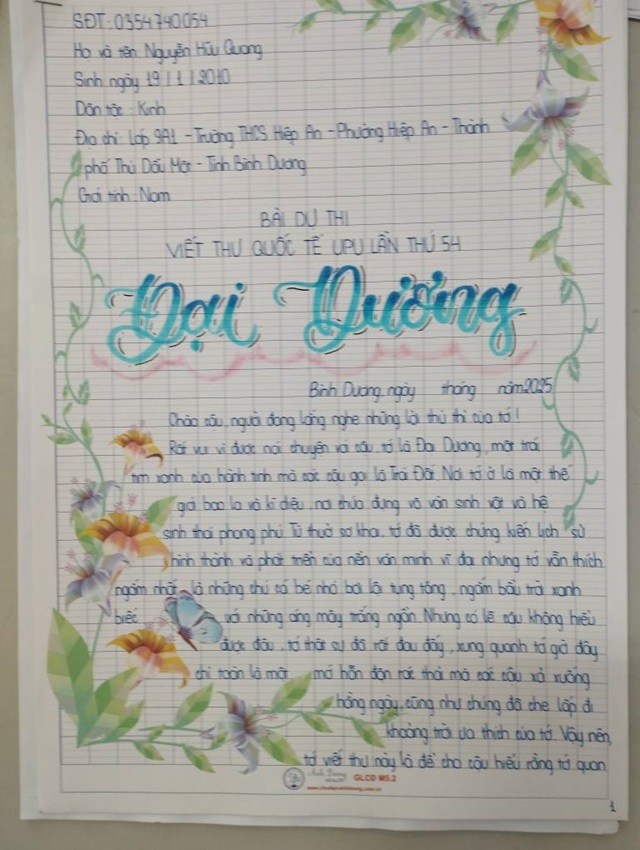 SĐT: 0354740054
Họ và tên: Nguyễn Hữu Quang
Sinh ngày 19/1/2010
Dân tộc: Kinh
Địa chỉ: Lớp 9A1 - Trường THCS Hiệp An - Phường Hiệp An - Thành
phố Thủ Dầu Một - Tỉnh Bình Dương
Giới tính: Nam
BÀI DỰ THI
VIẾT THƯ QUỐC TẾ UPU LẦN THỨ 54
Đại Dương
Bình Dương, ngày tháng năm 2025
Chào cậu, người đang lắng nghe những lời thủ thỉ của tớ!
Rất vui vì được nói chuyện với cậu, tớ là Đại Dương, một trái
tim xanh của hành tinh mà các cậu gọi là Trái Đất. Nơi tớ ở là một thế
giới bao la và kì diệu, nơi chứa đựng vô vàn sinh vật và hệ
sinh thái phong phú. Từ thuở sơ khai, tớ đã được chứng kiến lịch sử
hình thành và phát triển của nền văn minh vĩ đại nhưng tớ vẫn thích
ngắm nhất là những chú cá bé nhỏ bơi lội tung tăng, ngắm bầu trời xanh
biếc với những áng mây trắng ngần. Nhưng có lẽ cậu không hiểu
được đâu, tớ thật sự đã rất đau đấy, xung quanh tớ giờ đây
chỉ toàn là một mớ hỗn độn rác thải mà các cậu xả xuống
hằng ngày, cũng như chúng đã che lấp đi
khoảng trời ưa thích của tớ. Vậy nên,
tớ viết thư này là để cho cậu hiểu rằng tớ quan
GLCD M5.2
1